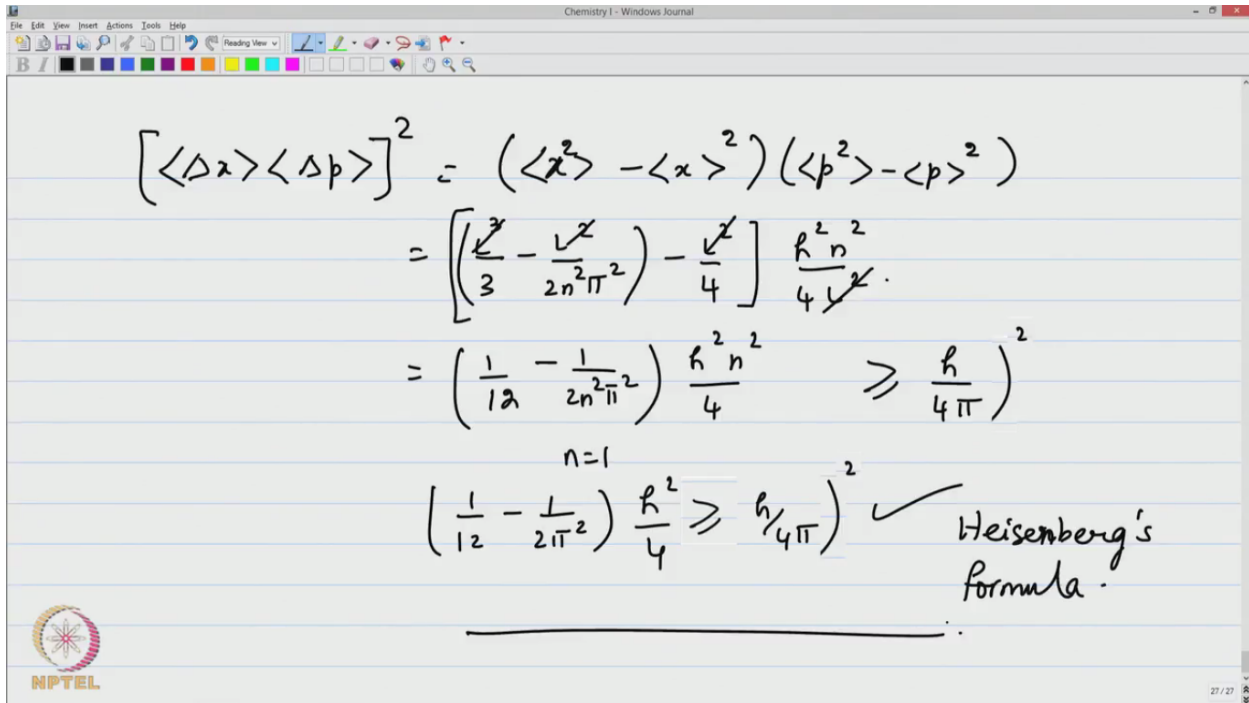 Chemistry I - Windows Journal
File Edit View Insert Actions Tools Help
Reading View
B I
[<Δx><Δp>]² = (<x²> - <x>²)(<p²> - <p>²)
= [(L²/3 - L²/2n²π²) - L²/4] h²n²/4L² .
= (1/12 - 1/2n²π²) h²n²/4 ≥ h/4π)²
n=1
(1/12 - 1/2π²) h²/4 ≥ h/4π)² ✓ Heisenberg's
formula.
NPTEL
27 / 27